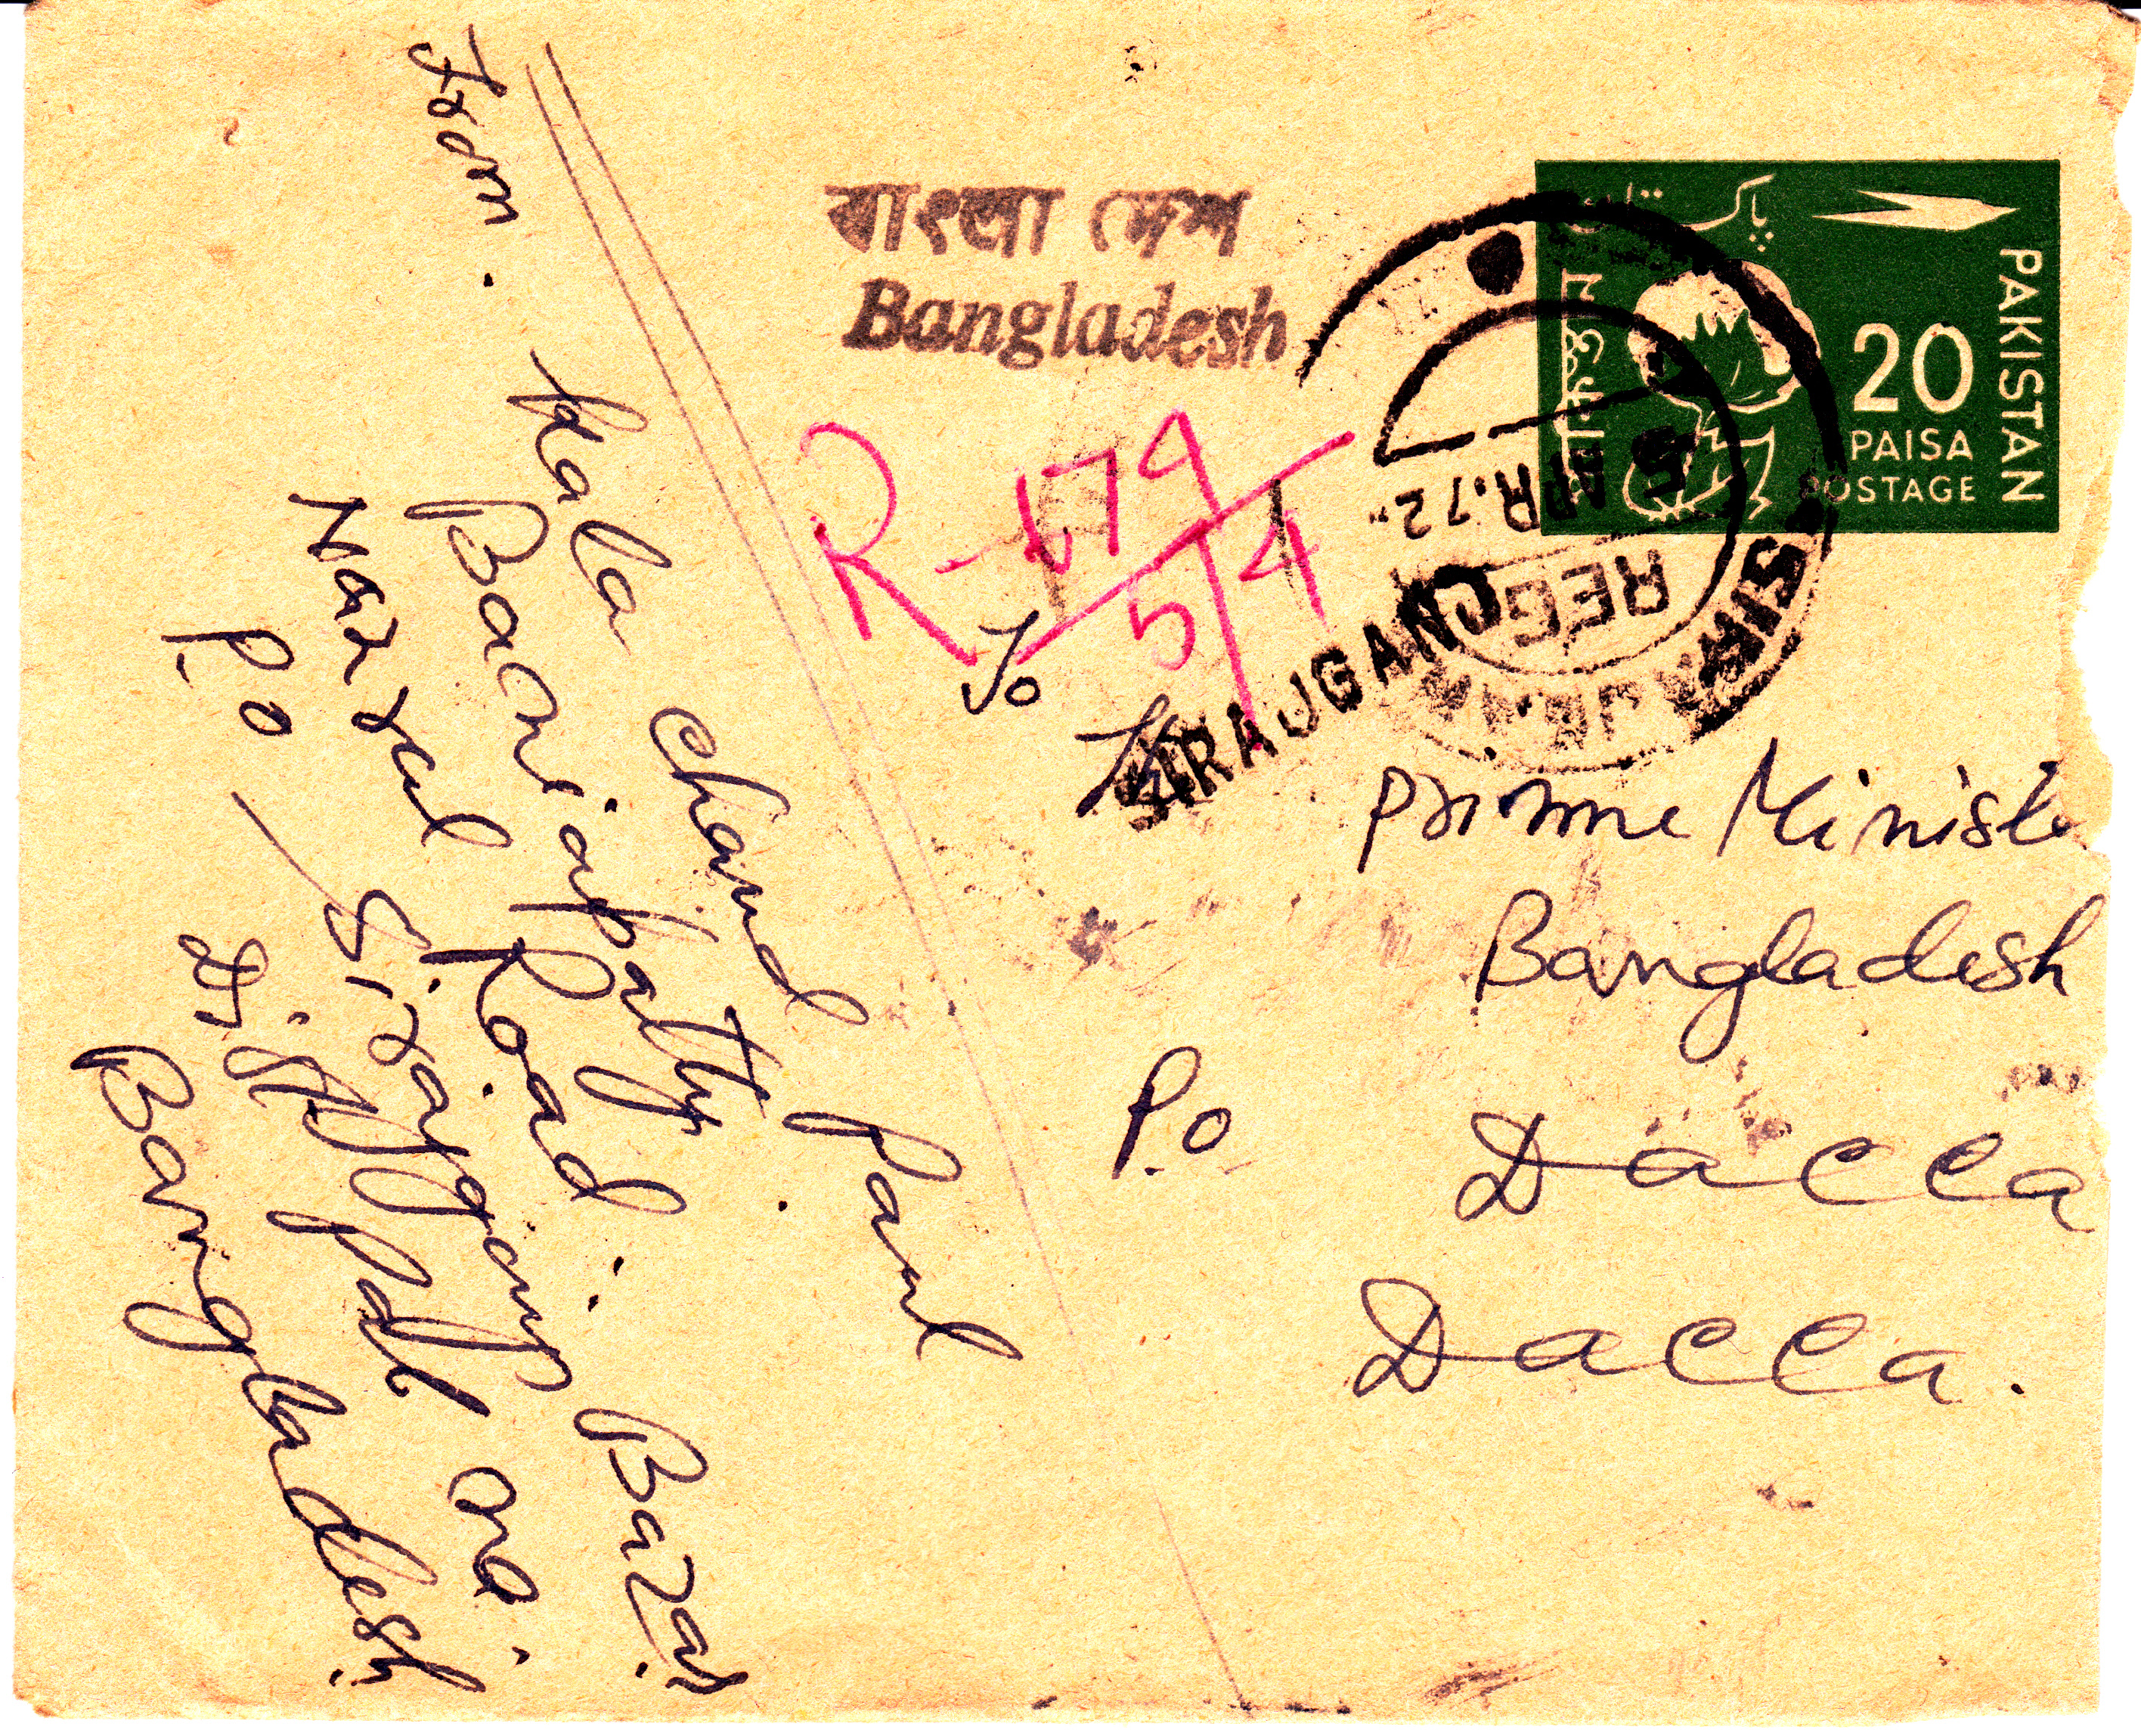 From. Kala Chand Paul
Baniapatty.
Narral Road.
P.O – Sirajganj Bazar.
Dist Pabna.
Bangladesh
বাংলা দেশ
Bangladesh
R-179
5/4
To
SIRAJGANJ
Prime Ministe
Bangladesh
P.O Dacca
Dacca.
پاکستان
PAKISTAN
পাকিস্তান
20
PAISA
POSTAGE
5 APR.72
REG
SIRAJGANJ